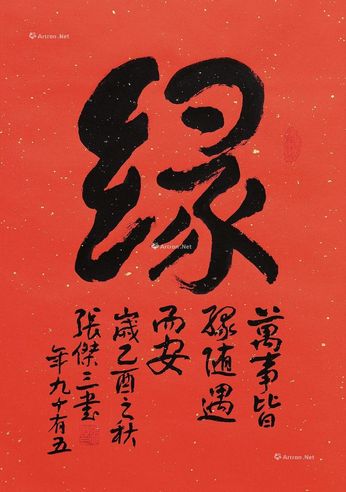 緣
萬事皆
緣随遇
而安
歲乙酉之秋
張傑三書
年九十有五
Artron.Net
Artron.Net
Artron.Net